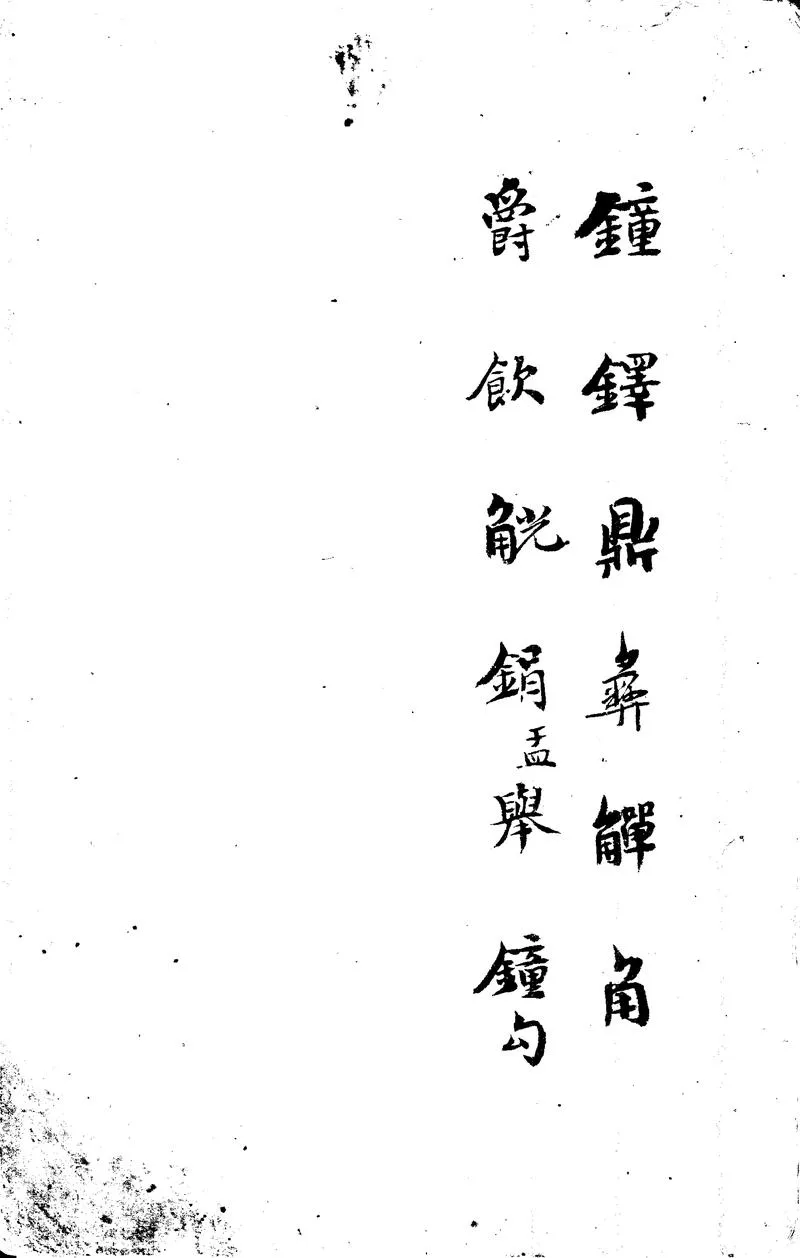 鐘鐸鼎彝觶角
爵飲觥鋗盂舉鐘勾